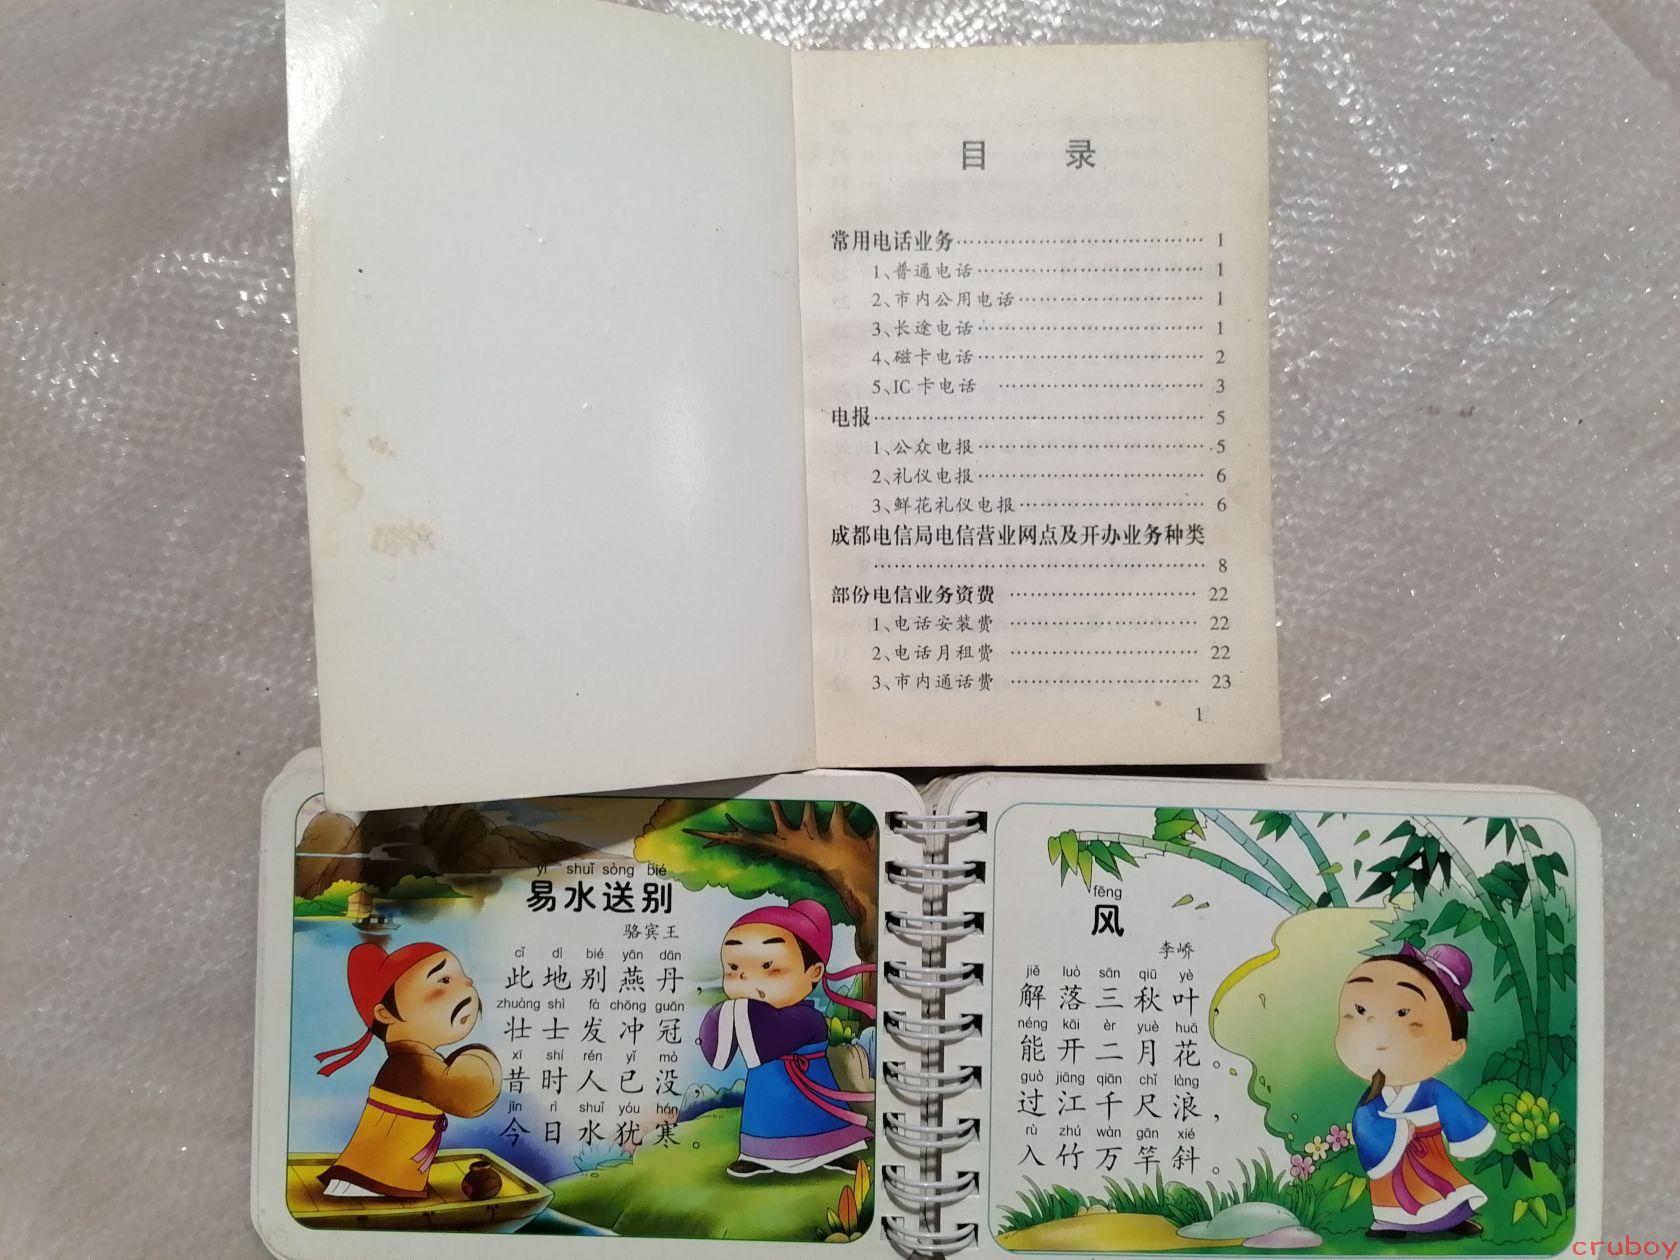 目 录
常用电话业务…………………………………… 1
1、普通电话…………………………… 1
2、市内公用电话……………………… 1
3、长途电话…………………………… 1
4、磁卡电话…………………………… 2
5、IC 卡电话 ………………………… 3
电报………………………………………… 5
1、公众电报…………………………… 5
2、礼仪电报…………………………… 6
3、鲜花礼仪电报……………………… 6
成都电信局电信营业网点及开办业务种类
………………………………………… 8
部份电信业务资费 ……………………… 22
1、电话安装费 ……………………… 22
2、电话月租费 ……………………… 22
3、市内通话费 ……………………… 23
1
yì shuǐ sòng bié
易水送别
骆宾王
cǐ dì bié yān dān
此地别燕丹，
zhuàng shì fà chōng guān
壮士发冲冠。
xī shí rén yǐ mò
昔时人已没，
jīn rì shuǐ yóu hán
今日水犹寒。
fēng
风
李峤
jiě luò sān qiū yè
解落三秋叶，
néng kāi èr yuè huā
能开二月花。
guò jiāng qiān chǐ làng
过江千尺浪，
rù zhú wàn gān xié
入竹万竿斜。
cruboy